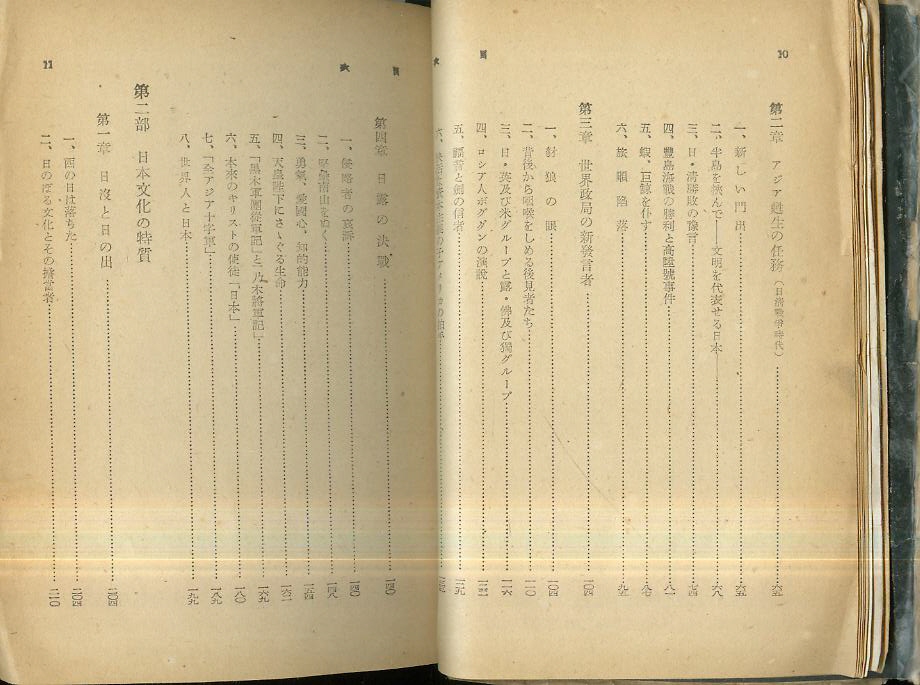 10
第二章 アジア甦生の任務(日淸戰爭時代)
一、新しい門出 六五
二、半島を挾んで――文明を代表せる日本 六八
三、日・淸勝敗の豫言 七四
四、豐島海戰の勝利と高陞號事件 八一
五、蝦、巨鯨を仆す 八七
六、旅順陷落 九五
第三章 世界政局の新發言者 一〇四
一、豺狼の眼 一〇四
二、背後から咽喉をしめる後見者たち 一一〇
三、日・英及び米グループと露・佛及び獨グループ 一一六
四、ロシア人ボグダンの演說
五、福音と劍の信者 一二九
六、
11
第四章 日露の決戰 一四〇
一、侵略者の哀訴 一四〇
二、堅壘南山をぬく 一四八
三、勇氣、愛國心、知的能力 一五四
四、天皇陛下にさゝぐる生命 一六一
五、「黑木軍團從軍記」と「乃木將軍記」 一六九
六、本來のキリストの使徒「日本」 一八〇
七、「全アジア十字軍」 一八九
八、世界人と日本 一九九
第二部 日本文化の特質
第一章 日沒と日の出 二〇四
一、西の日は落ちた 二〇四
二、日のぼる文化とその擔當者 二一〇